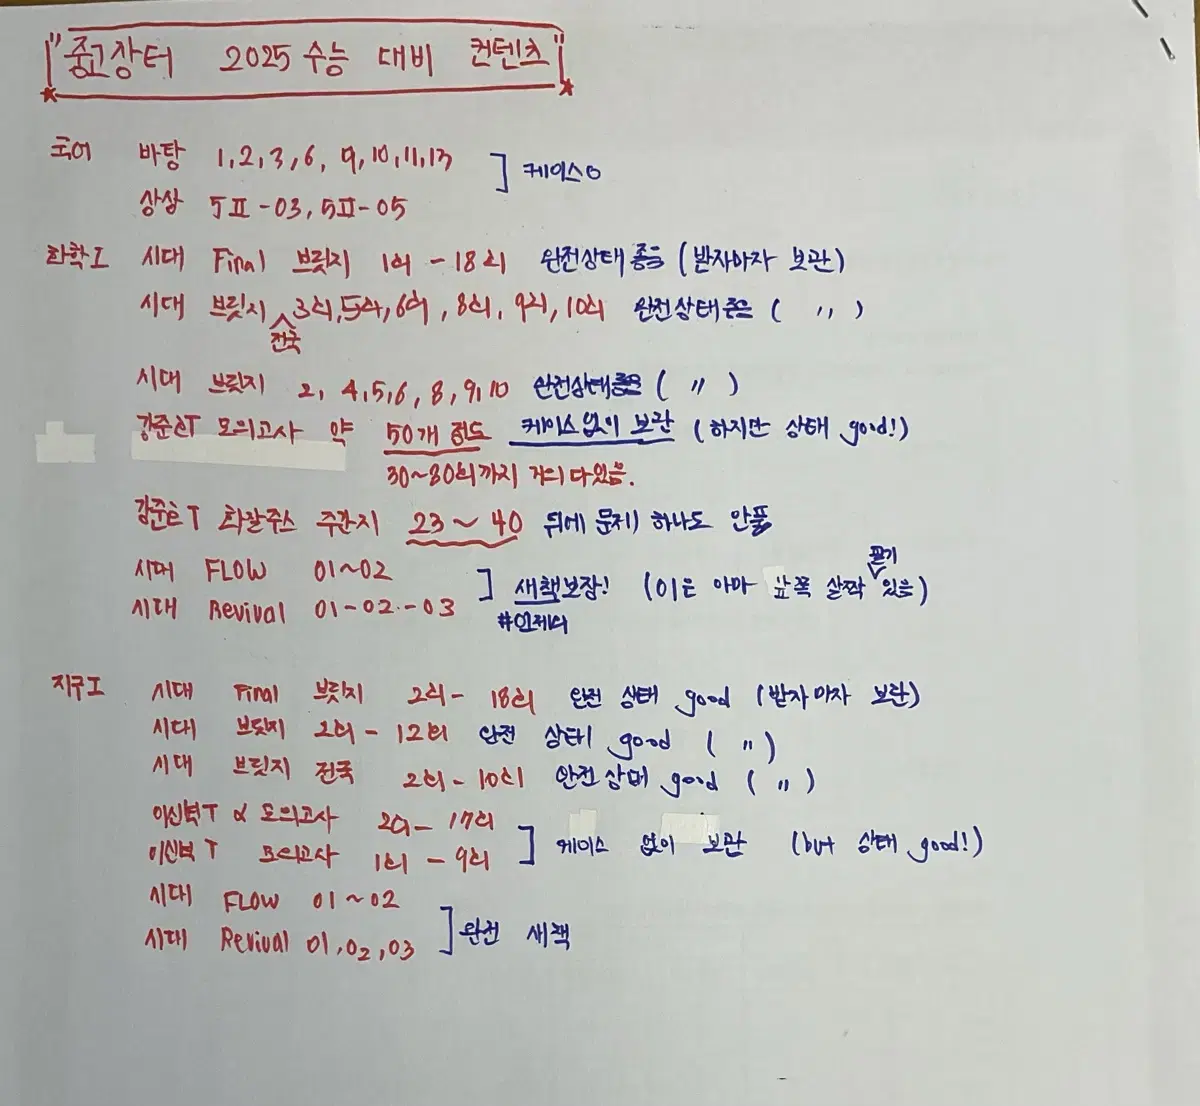 "중고장터 2025 수능 대비 컨텐츠"
국어 바탕 1,2,3,6, 9,10,11,13 ] 케이스O
상상 5Ⅱ-03, 5Ⅱ-05
화학Ⅰ 시대 Final 브릿지 1회 - 18회 완전상태좋음 (받자마자 보관)
시대 브릿지 전국 3회,5회,6회, 8회, 9회, 10회 완전상태좋음 ( 〃 )
시대 브릿지 2, 4,5,6, 8,9,10 완전상태좋음 ( 〃 )
강준호T 모의고사 약 50개 정도 케이스없이 보관 (하지만 상태 good!)
30~80회까지 거의 다있음.
강준호T 화잘주스 주간지 23 ~ 40 뒤에 문제 하나도 안풂
시대 FLOW 01~02
시대 Revival 01-02--03 ] 새책보장! (01은 아마 앞쪽 살짝 필기 있음)
#언제더
지구Ⅰ 시대 Final 브릿지 2회 - 18회 완전 상태 good (받자마자 보관)
시대 브릿지 2회 - 12회 완전 상태 good ( 〃 )
시대 브릿지 전국 2회 - 10회 완전상태 good ( 〃 )
이신혁T α 모의고사 2회 - 17회
이신혁T 모의고사 1회 - 9회 ] 케이스 없이 보관 (but 상태 good!)
시대 FLOW 01~02
시대 Revival 01,02,03 ] 완전 새책